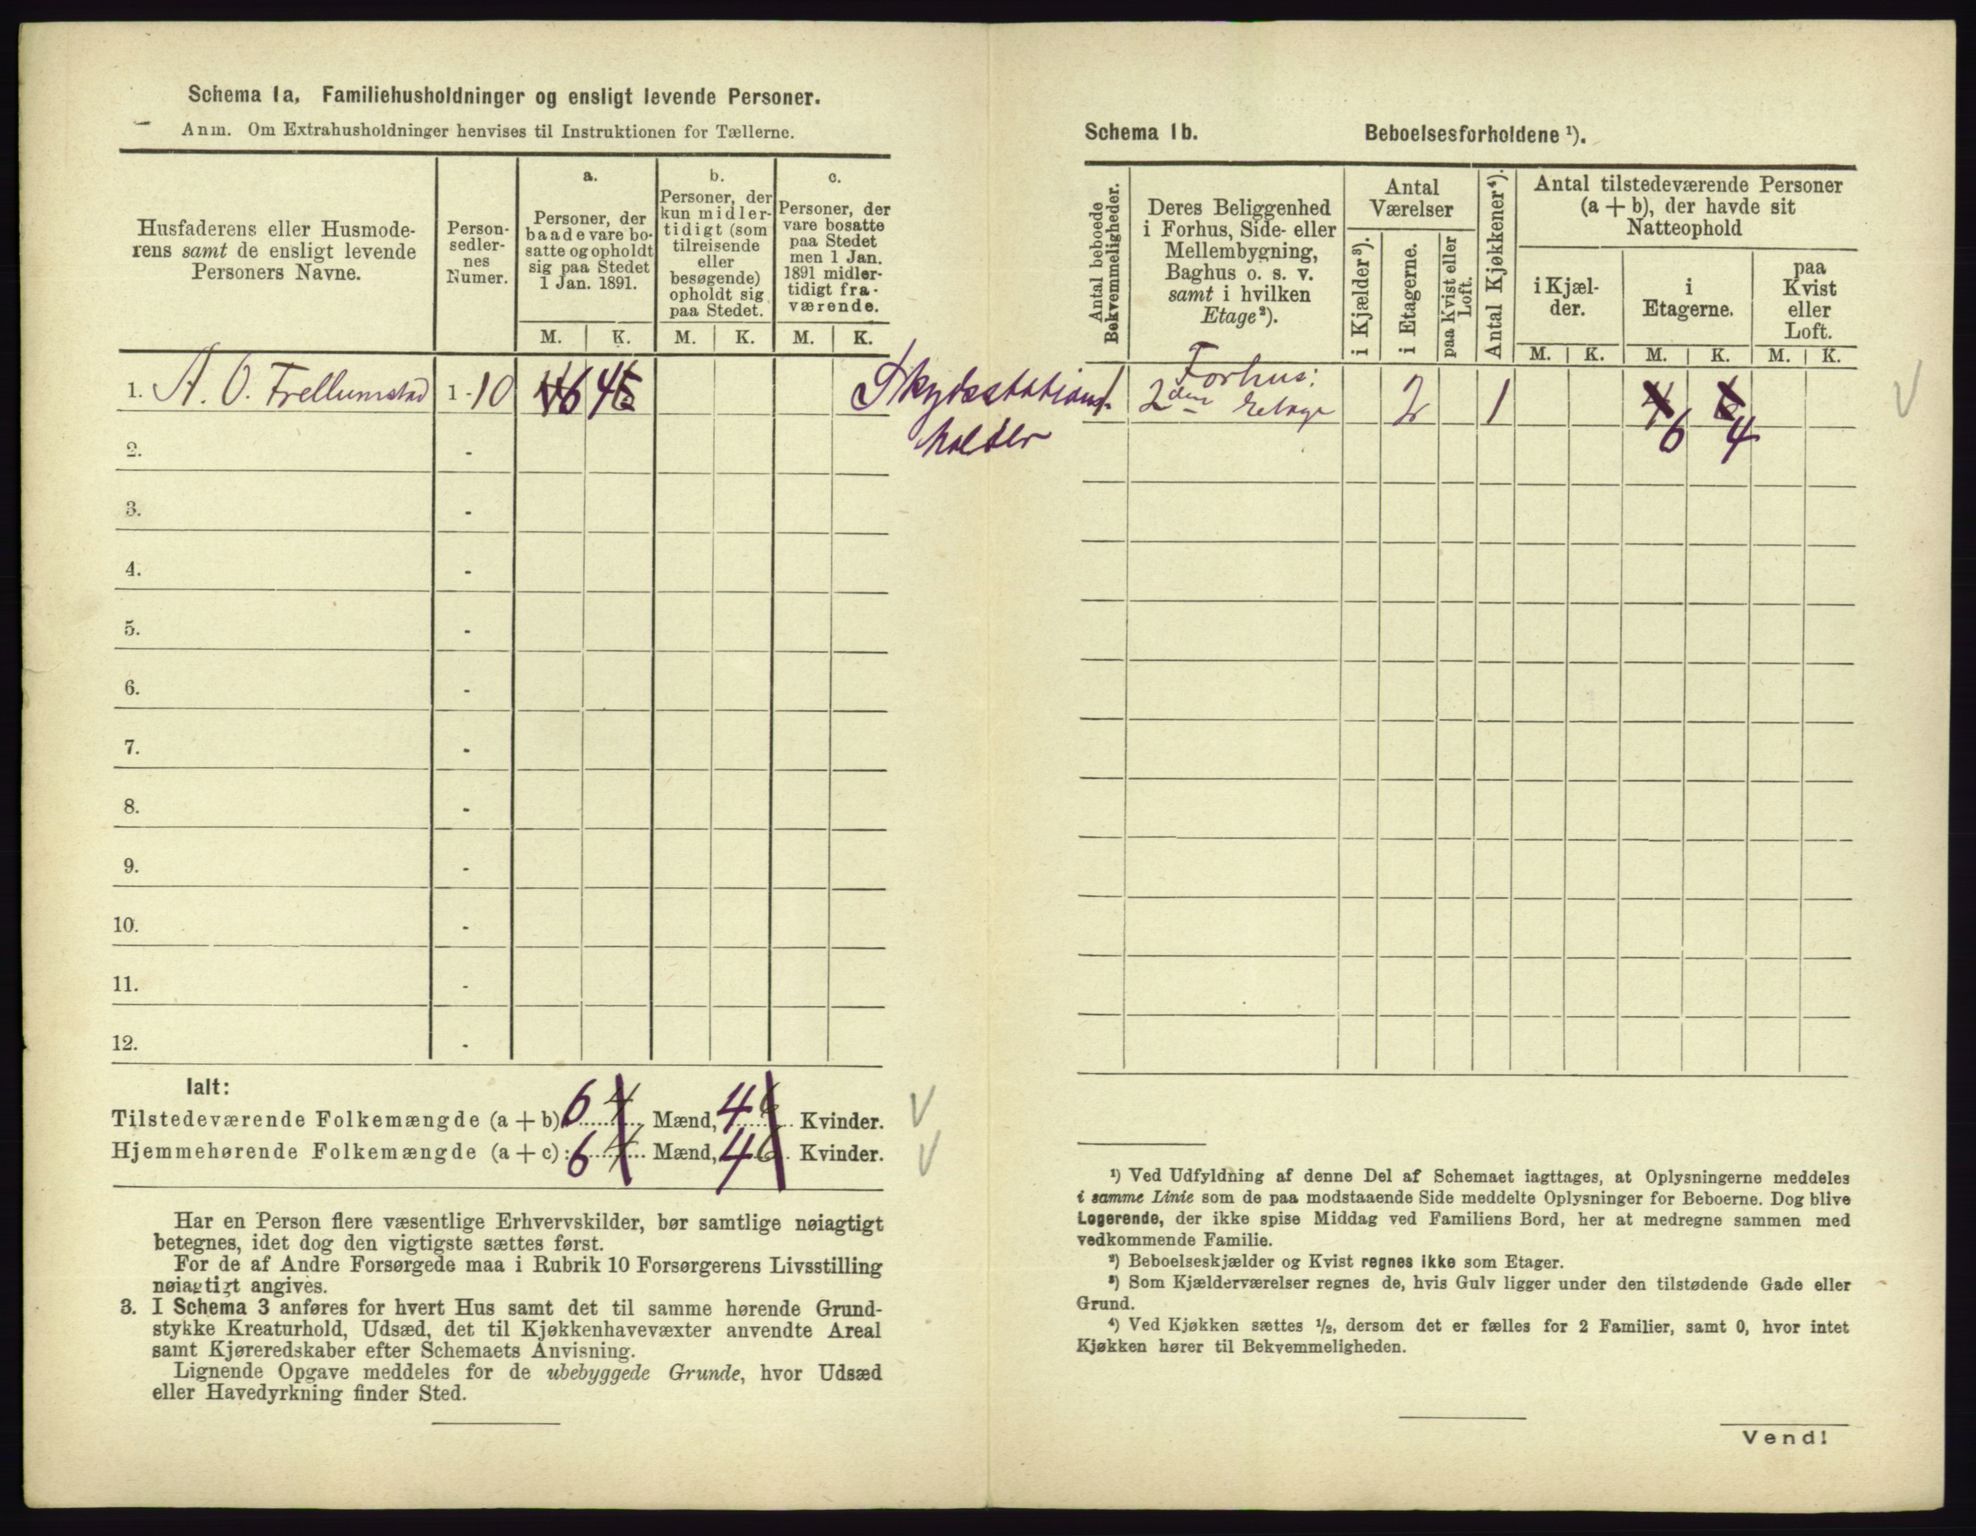 Schema 1a, Familiehusholdninger og ensligt levende Personer.
Anm. Om Extrahusholdninger henvises til Instruktionen for Tællerne.
Husfaderens eller Husmode-
rens samt de ensligt levende
Personers Navne.
Person-
sedler-
nes
Numer.
a.
Personer, der
baade vare bo-
satte og opholdt
sig paa Stedet
1 Jan. 1891.
b.
Personer, der
kun midler-
tidigt (som
tilreisende
eller
besøgende)
opholdt sig
paa Stedet.
c.
Personer, der
vare bosatte
paa Stedet
men 1 Jan.
1891 midler-
tidigt fra-
værende.
M. K. M. K. M. K.
1. A. O. Frellumstad 1-10 6 4 Skydsstations-
holder
2. -
3. -
4. -
5. -
6. -
7. -
8. -
9. -
10. -
11. -
12. -
Ialt:
Tilstedeværende Folkemængde (a + b): 6 4 Mænd, 4 6 Kvinder.
Hjemmehørende Folkemængde (a + c): 6 4 Mænd, 4 6 Kvinder.
Har en Person flere væsentlige Erhvervskilder, bør samtlige nøiagtigt
betegnes, idet dog den vigtigste sættes først.
For de af Andre Forsørgede maa i Rubrik 10 Forsørgerens Livsstilling
nøiagtigt angives.
3. I Schema 3 anføres for hvert Hus samt det til samme hørende Grund-
stykke Kreaturhold, Udsæd, det til Kjøkkenhavevæxter anvendte Areal
samt Kjøreredskaber efter Schemaets Anvisning.
Lignende Opgave meddeles for de ubebyggede Grunde, hvor Udsæd
eller Havedyrkning finder Sted.
Schema 1b. Beboelsesforholdene ¹).
Antal beboede
Bekvemmeligheder.
Deres Beliggenhed
i Forhus, Side- eller
Mellembygning,
Baghus o. s. v.
samt i hvilken
Etage²).
Antal
Værelser
i Kjælder³).
i Etagerne.
paa Kvist eller
Loft.
Antal Kjøkkener⁴).
Antal tilstedeværende Personer
(a + b), der havde sit
Natteophold
i Kjæl-
der.
i
Etagerne.
paa
Kvist
eller
Loft.
M. K. M. K. M. K.
1 Forhus:
2den Etage 2 1 6 4
¹) Ved Udfyldning af denne Del af Schemaet iagttages, at Oplysningerne meddeles
i samme Linie som de paa modstaaende Side meddelte Oplysninger for Beboerne. Dog blive
Logerende, der ikke spise Middag ved Familiens Bord, her at medregne sammen med
vedkommende Familie.
²) Beboelseskjælder og Kvist regnes ikke som Etager.
³) Som Kjælderværelser regnes de, hvis Gulv ligger under den tilstødende Gade eller
Grund.
⁴) Ved Kjøkken sættes ½, dersom det er fælles for 2 Familier, samt 0, hvor intet
Kjøkken hører til Bekvemmeligheden.
Vend!